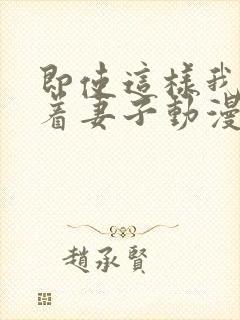 即使這樣我
着妻子動漫
趙承賢